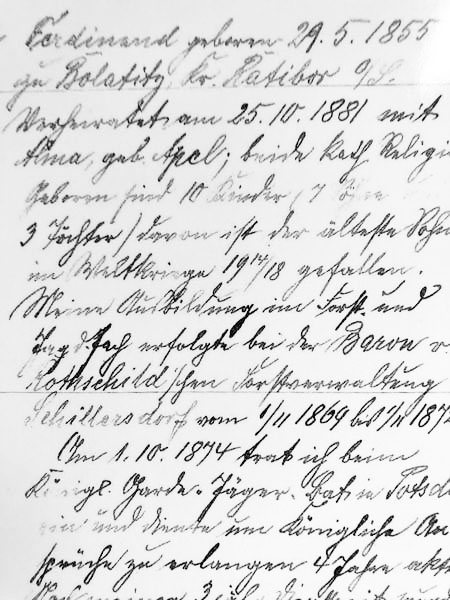 Ferdinend geboren 29. 5. 1855
zu Bolatitz, Kr. Ratibor O/S.
Verheiratet am 25. 10. 1881 mit
Alma, geb. Apel; beide kath. Religi
Geboren sind 10 Kinder, 7 Söhne
3 Töchter / davon ist der älteste Sohn
im Weltkriege 1914/18 gefallen.
Meine Ausbildung im Forst- und
Jagdfach erfolgte bei der Baron v.
Rothschild'schen Forstverwaltung
Schillersdorf vom 1/4 1869 bis 1/4 187
Am 1. 10. 1874 trat ich beim
Königl. Garde-Jäger-Bat. in Potsd
ein und diente um Königliche An
sprüche zu erlangen 4 Jahre akt
meiner 3